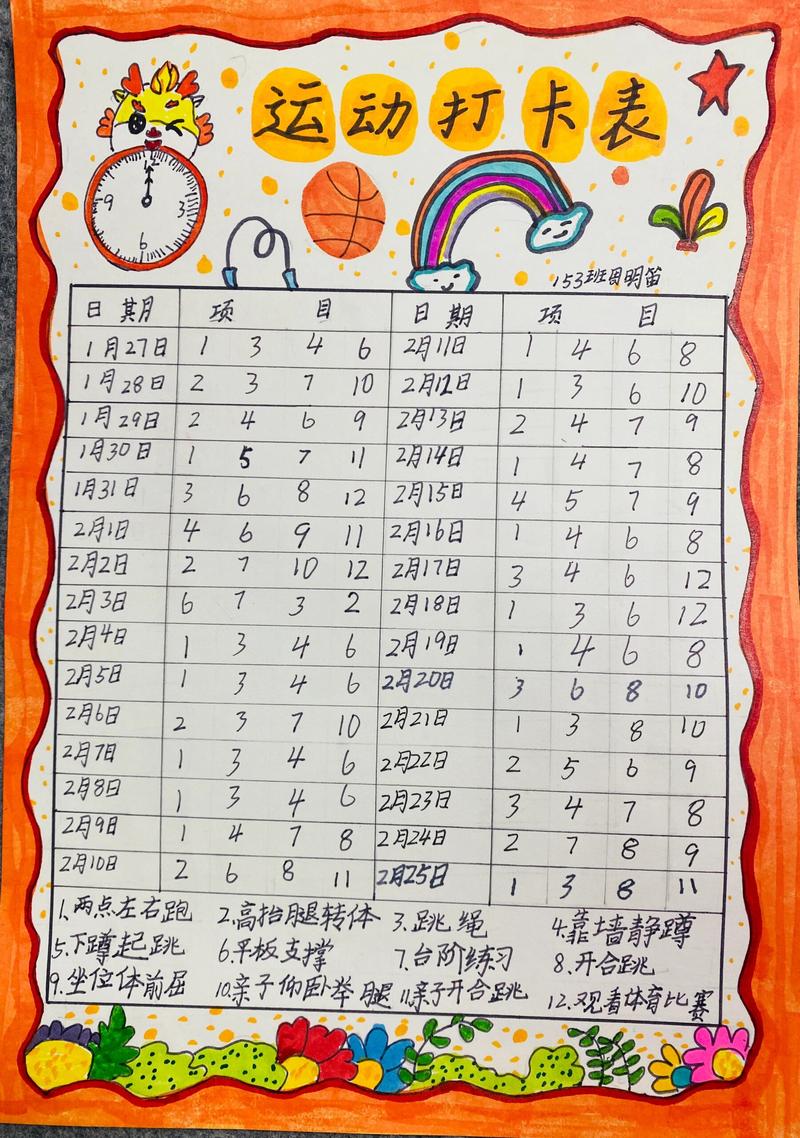 运动打卡表
12
9 3
6
153班周明笛
日期 项目 日期 项目
1月27日 1 3 4 6 2月11日 1 4 6 8
1月28日 2 3 7 10 2月12日 1 3 6 10
1月29日 2 4 6 9 2月13日 2 4 7 9
1月30日 1 5 7 11 2月14日 1 4 7 8
1月31日 3 6 8 12 2月15日 4 5 7 9
2月1日 4 6 9 11 2月16日 1 4 6 8
2月2日 2 7 10 12 2月17日 3 4 6 12
2月3日 6 7 3 2 2月18日 1 3 6 12
2月4日 1 3 4 6 2月19日 1 4 6 8
2月5日 1 3 4 6 2月20日 3 6 8 10
2月6日 2 3 7 10 2月21日 1 3 8 10
2月7日 1 3 4 6 2月22日 2 5 6 9
2月8日 1 3 4 6 2月23日 3 4 7 8
2月9日 1 4 7 8 2月24日 2 7 8 9
2月10日 2 6 8 11 2月25日 1 3 8 11
1.两点左右跑 2.高抬腿转体 3.跳绳 4.靠墙静蹲
5.下蹲起跳 6.平板支撑 7.台阶练习 8.开合跳
9.坐位体前屈 10.亲子仰卧举腿 11.亲子开合跳 12.观看体育比赛